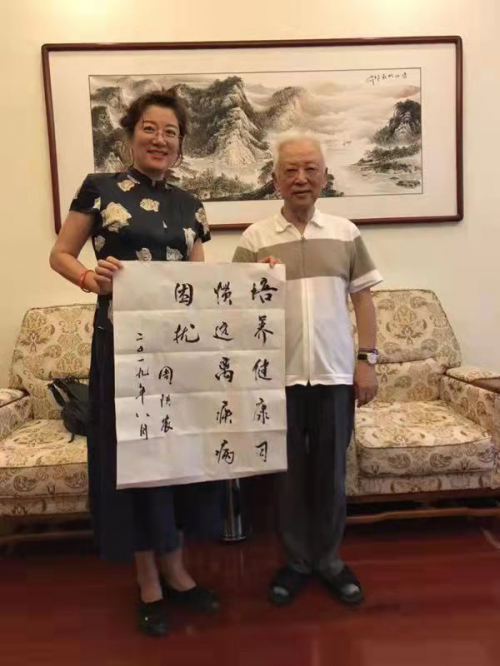 培养健康习
惯远离疾病
困扰
周铁农
二〇一九年八月